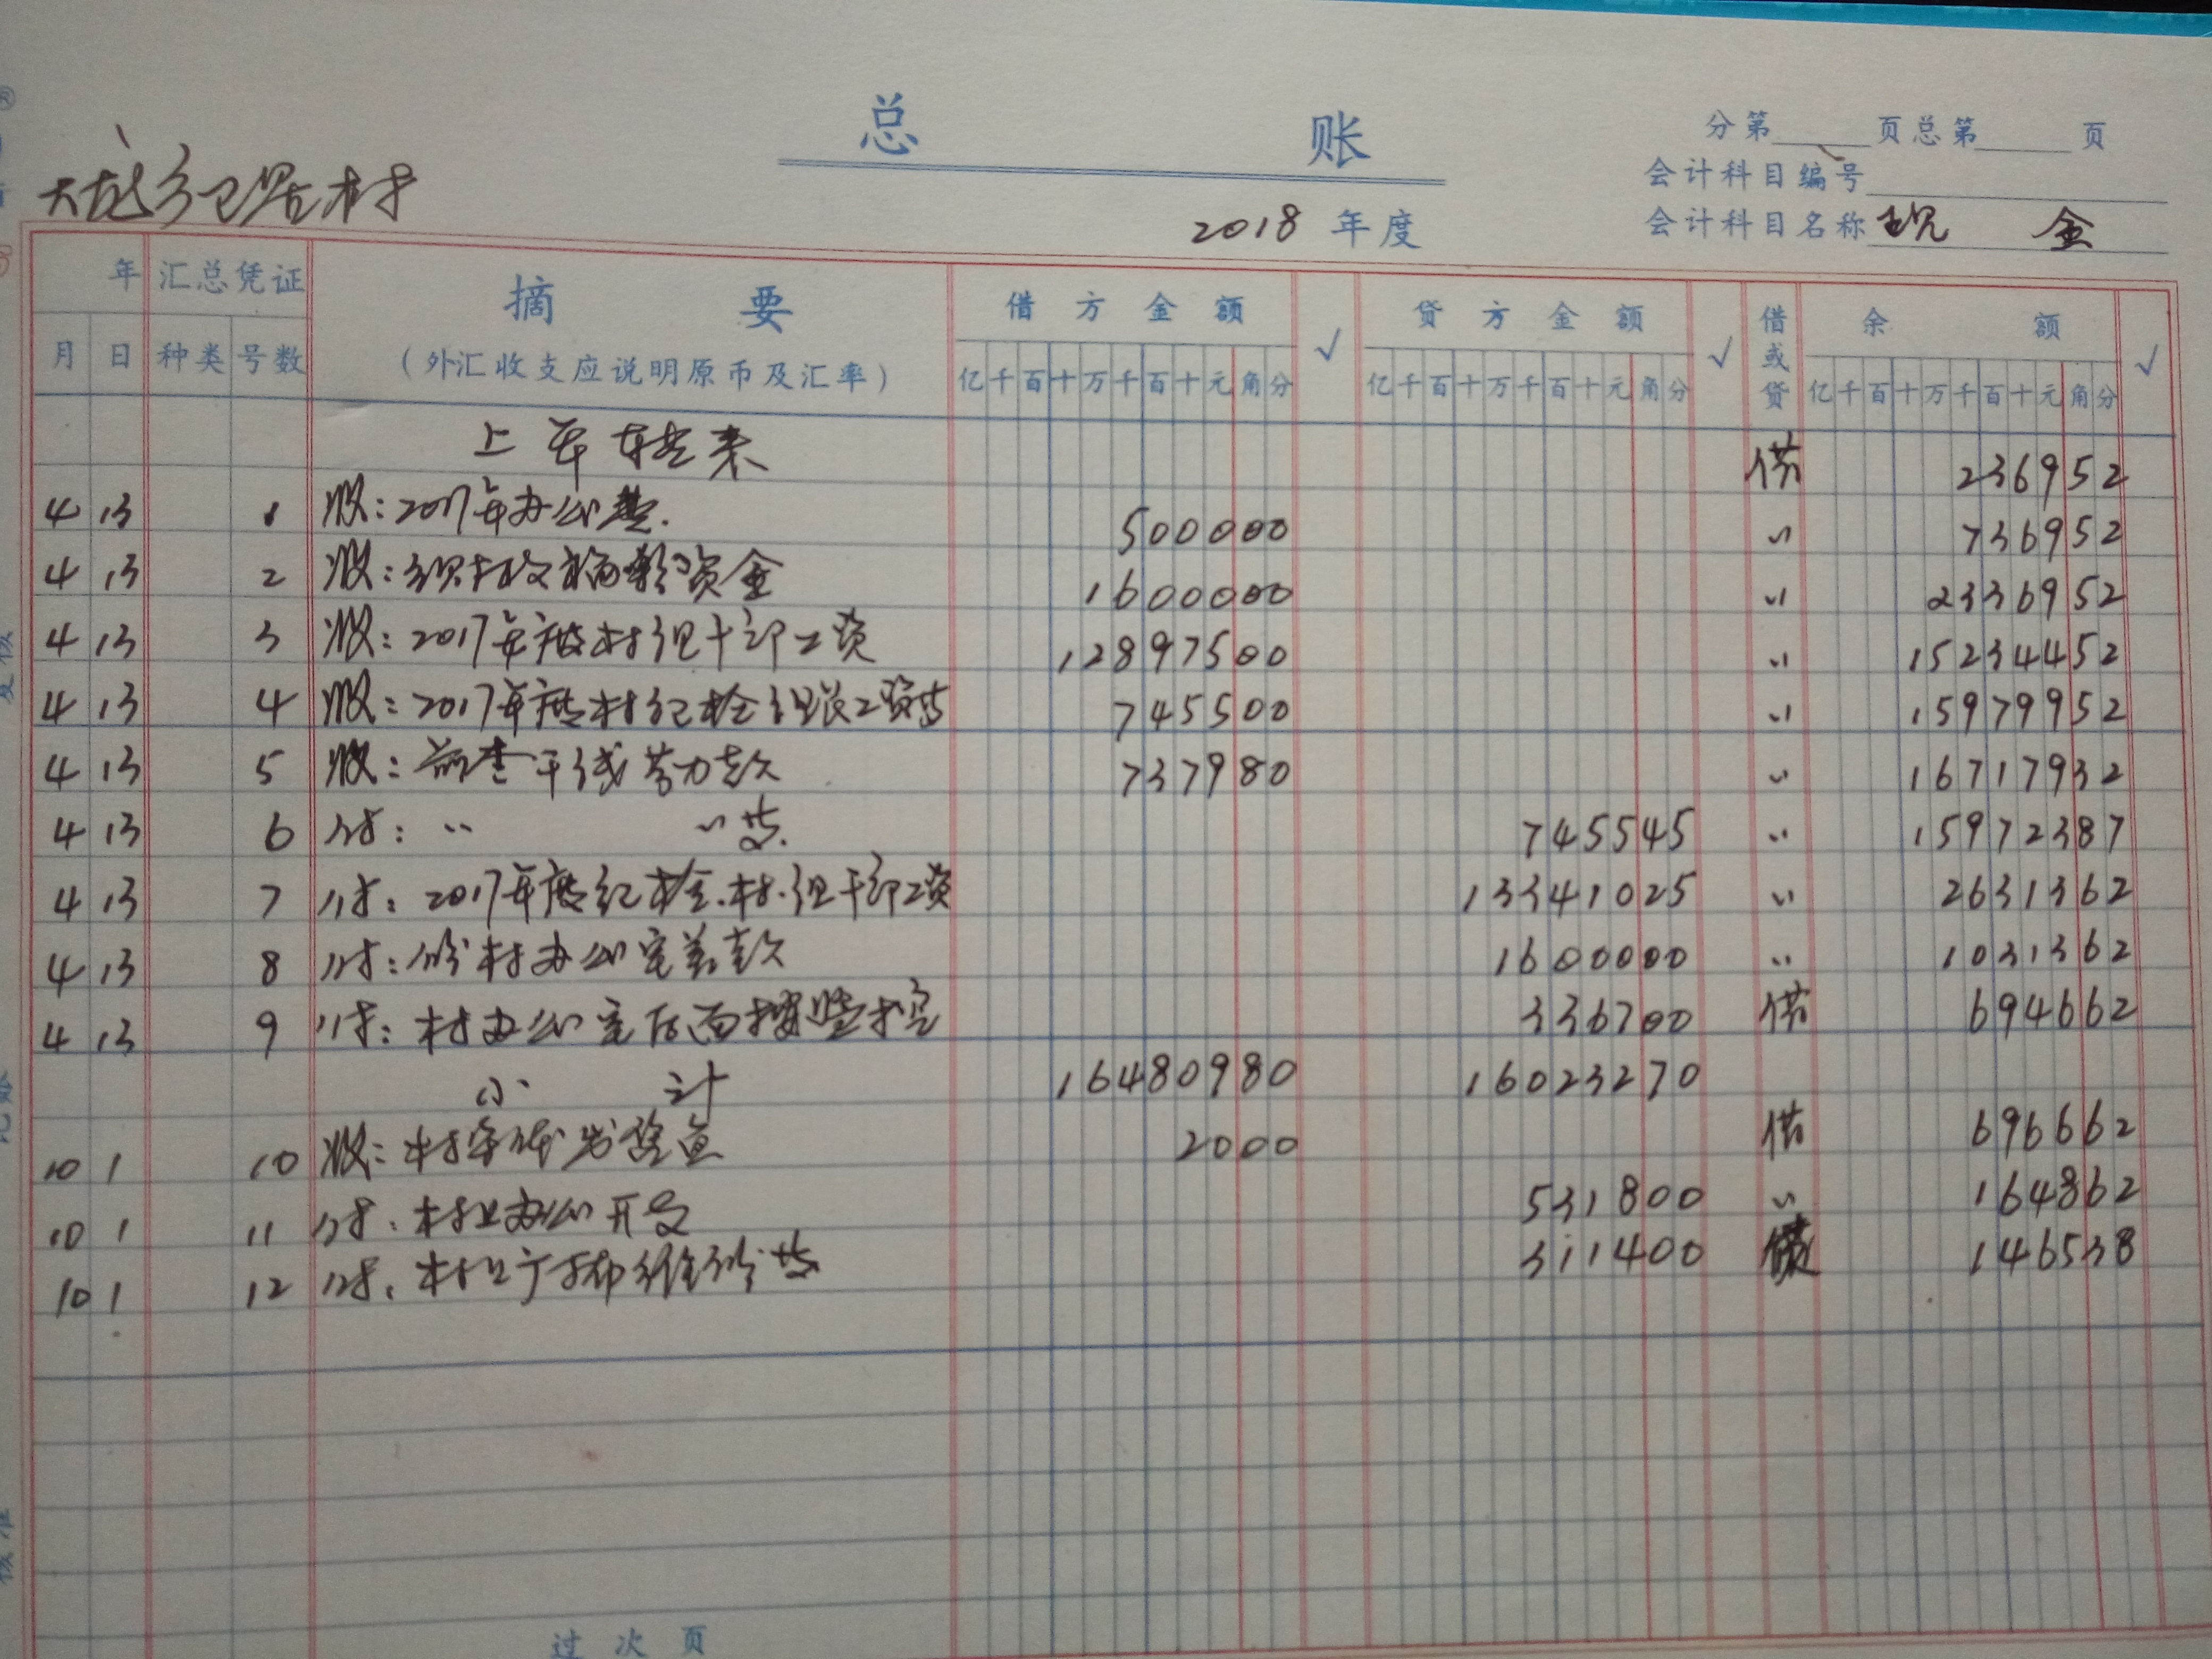 总 账
分第 页总第 页
会计科目编号
会计科目名称 现 金
2018 年度
年 汇总凭证 摘 要 借方金额 √ 贷方金额 √ 借或贷 余 额 √
月 日 种类 号数 (外汇收支应说明原币及汇率) 亿千百十万千百十元角分 亿千百十万千百十元角分 亿千百十万千百十元角分
上年转来 借 236952
4 13 1 收：2017年办公费. 500000 〃 736952
4 13 2 收： 资金 1600000 〃 2336952
4 13 3 收：2017年度村组干部工资 12897500 〃 15234452
4 13 4 收：2017年度村纪检组 工资款 745500 〃 15979952
4 13 5 收： 干线劳力款 737980 〃 16717932
4 13 6 付：〃 〃款. 745545 〃 15972387
4 13 7 付：2017年度纪检.村.组干部工资 13341025 〃 2631362
4 13 8 付： 村办公室 款 1600000 〃 1031362
4 13 9 付：村办公室后面 336700 借 694662
小 计 16480980 16023270
10 1 10 收：村 2000 借 696662
10 1 11 付：村上办公开支 531800 〃 164862
10 1 12 付：村上广播维修款 311400 146538
过次页